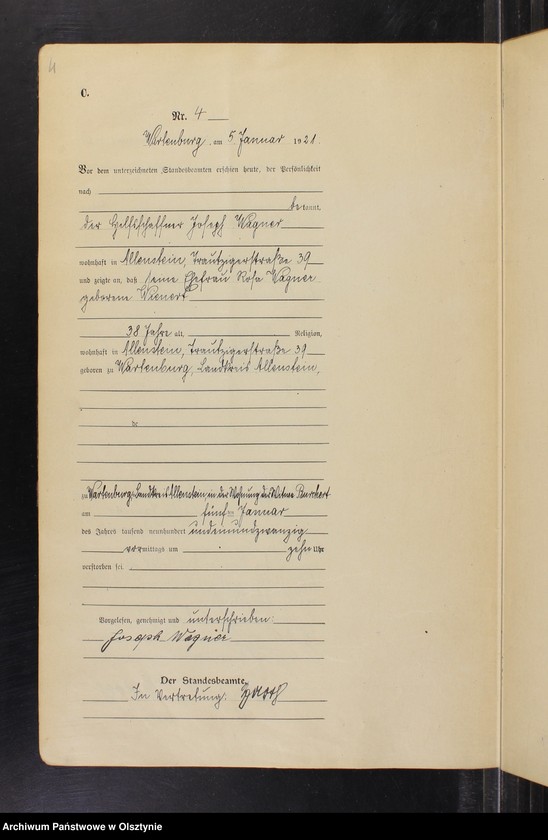 4
C.
Nr. 4
Wartenburg, am 5 Januar 1921.
Vor dem unterzeichneten Standesbeamten erschien heute, der Persönlichkeit
nach
bekannt,
der Hilfsschaffner Joseph Wagner
wohnhaft in Allenstein, Trautzigerstraße 39
und zeigte an, daß seine Ehefrau Rosa Wagner
geborene Wienert
38 Jahre alt, Religion,
wohnhaft in Allenstein, Trautzigerstraße 39
geboren zu Wartenburg, Landkreis Allenstein,
de
zu Wartenburg, Landkreis Allenstein in der Wohnung der Witwe
am fünften Januar
des Jahres tausend neunhundert undeinundzwanzig
vormittags um zehn Uhr
verstorben sei.
Vorgelesen, genehmigt und unterschrieben:
Joseph Wagner
Der Standesbeamte.
In Vertretung:
Archiwum Państwowe w Olsztynie